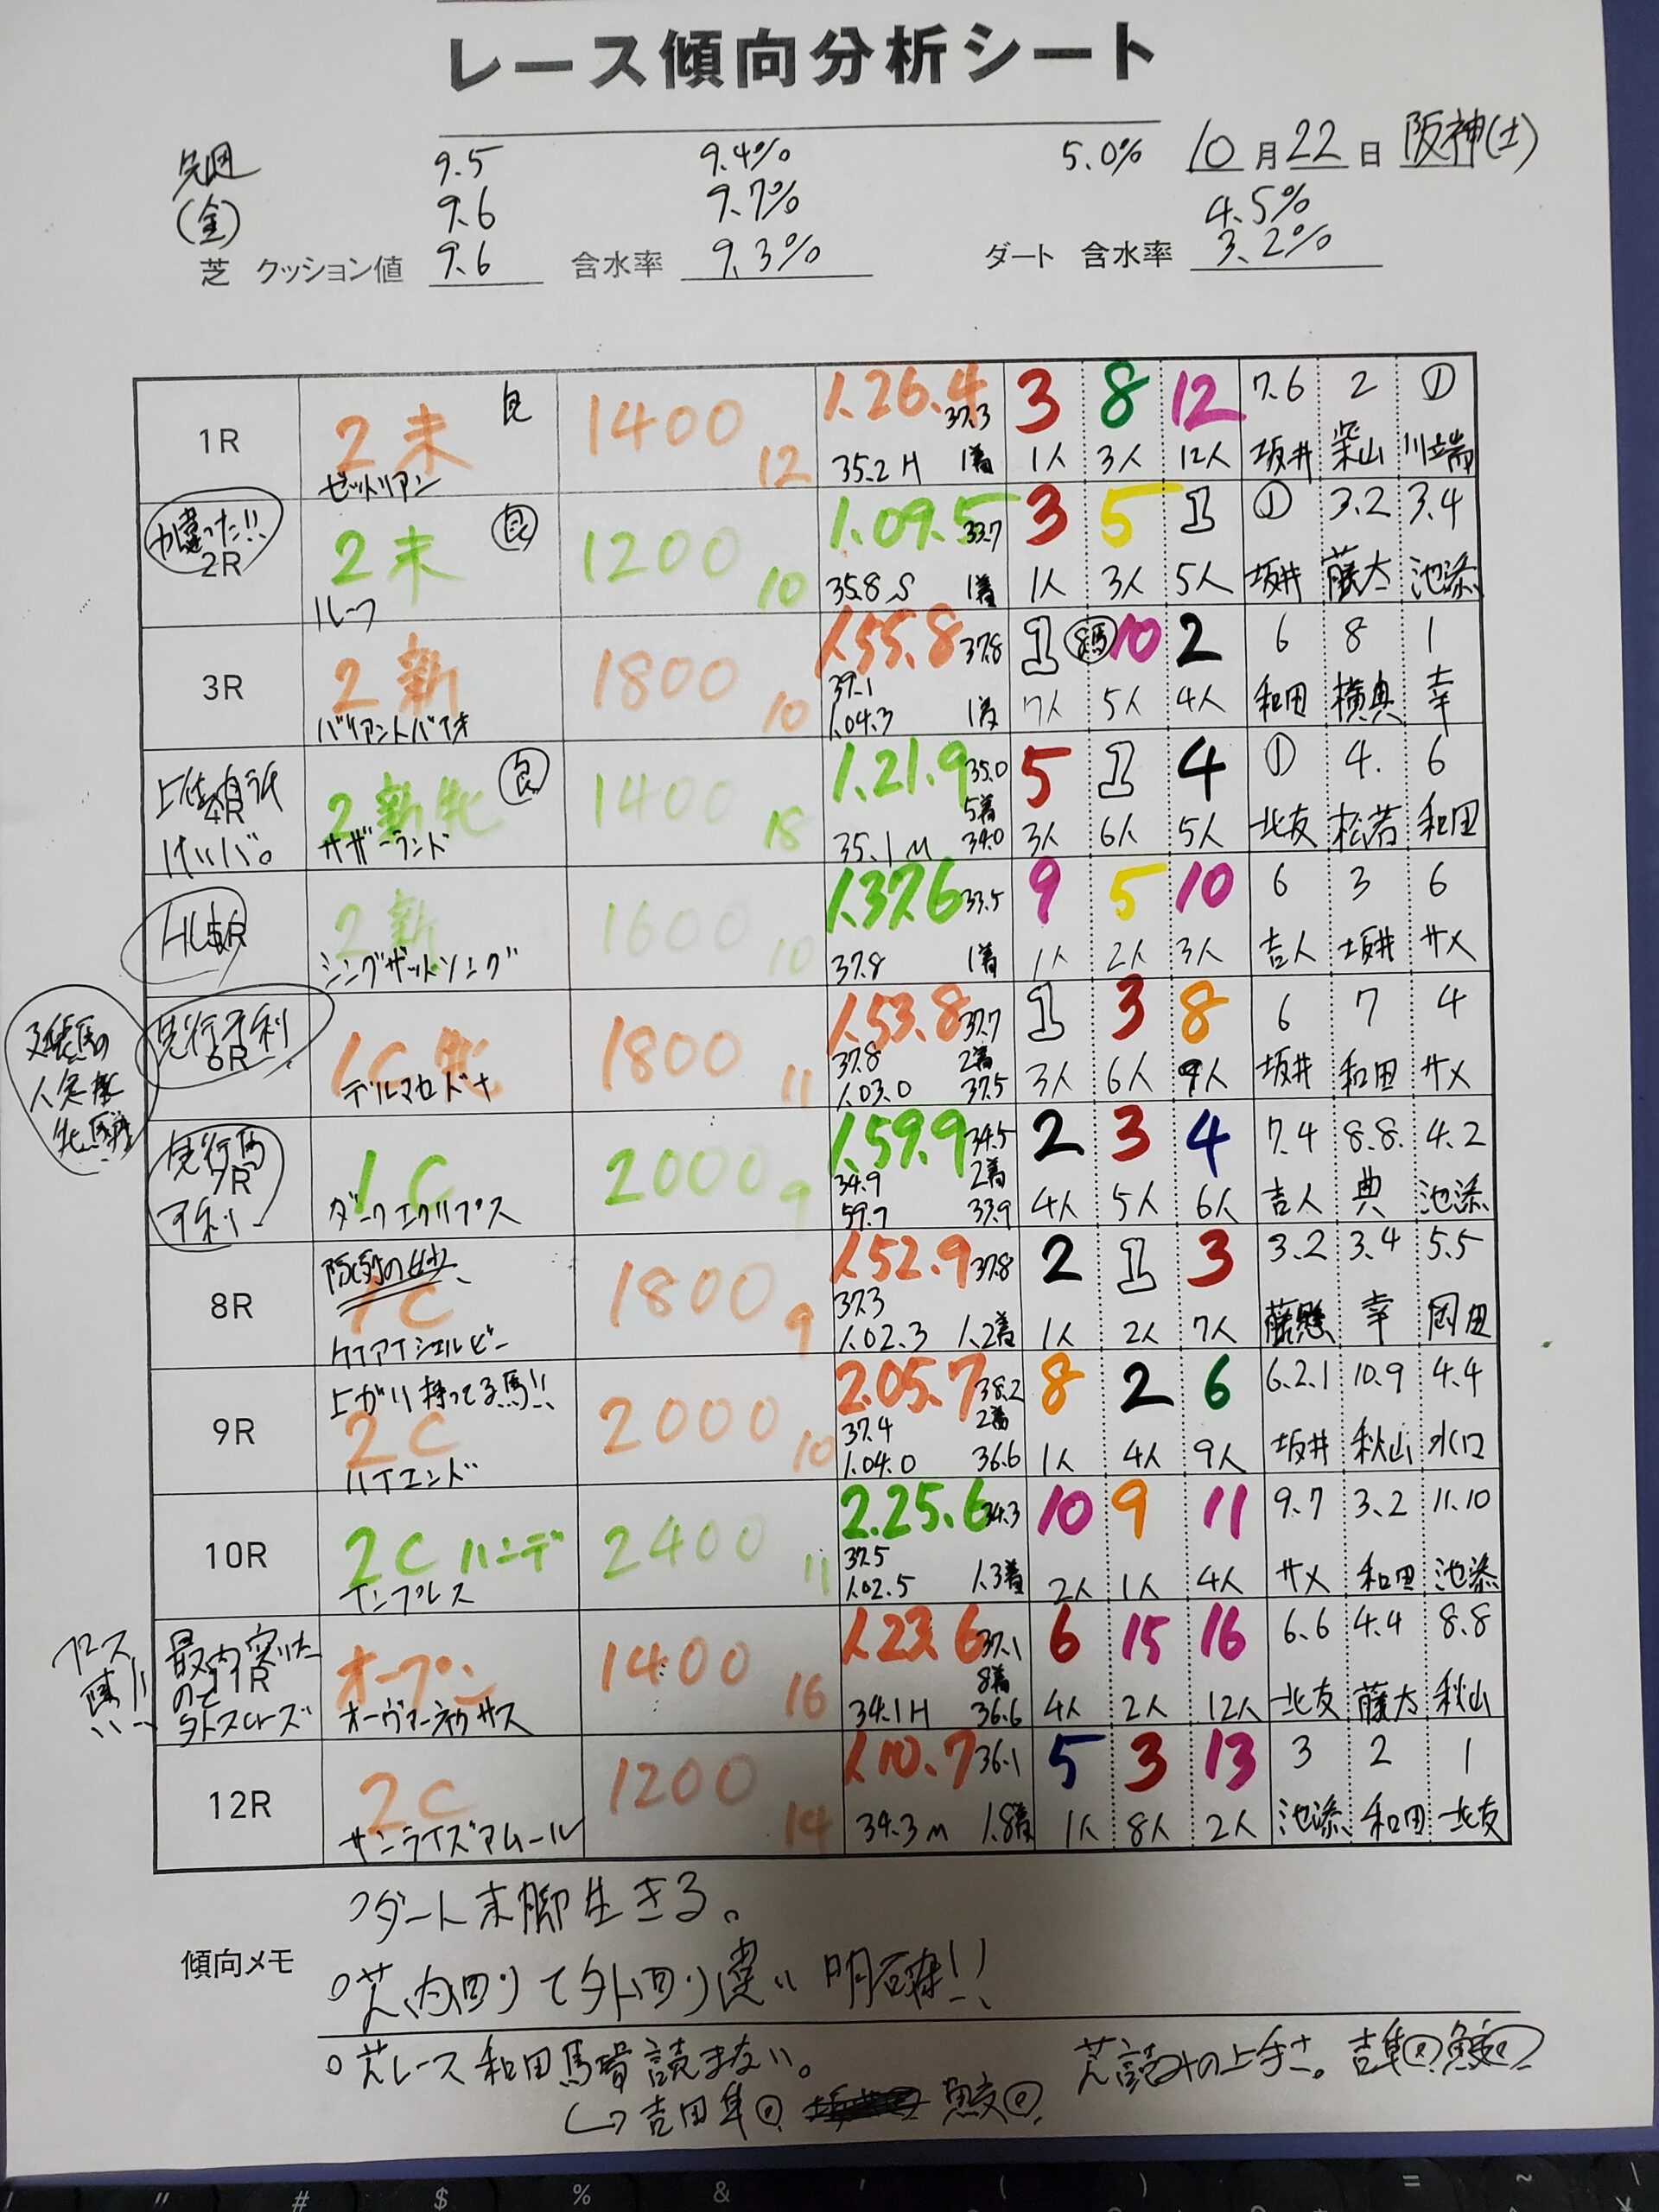 レース傾向分析シート
先週 9.5 9.4% 5.0% 10月22日 阪神(土)
(金) 9.6 9.7% 4.5%
芝 クッション値 9.6 含水率 9.3% ダート 含水率 3.2%
1R 2未 良 1400 12 1.26.4 37.3 3 8 12 7.6 2 ①
ゼットリアン 35.2 H 1着 1人 3人 12人 坂井 泉山 川端
力違った!!
2R 2未 良 1200 10 1.09.5 33.7 3 5 1 ① 3.2 3.4
ルーフ 35.8 S 1着 1人 3人 5人 坂井 藤大 池添
3R 2新 1800 10 1.55.8 37.8 1 8馬 10 2 6 8 1
37.1
バリアントバイオ 1.04.3 1着 7人 5人 4人 和田 横典 幸
4R 2新牝 良 1400 18 1.21.9 35.0 5 1 4 ① 4. 6
5着
けいば。 サザーランド 35.1 M 34.0 3人 6人 5人 北友 松若 和田
5R 2新 1600 10 1.37.6 33.5 9 5 10 6 3 6
シングザットソング 37.8 1着 1人 2人 3人 吉人 坂井 サメ
先行不利
6R 1C牝 1800 11 1.53.8 37.7 1 3 8 6 7 4
37.8 2着
デルマセドナ 1.03.0 37.5 3人 6人 9人 坂井 和田 サメ
先行馬
7R 1C 2000 9 1.59.9 34.5 2 3 4 7.4 8.8. 4.2
34.9 2着
不利 ダークエクリプス 59.7 33.9 4人 5人 6人 吉人 典 池添
8R 1C 1800 9 1.52.9 37.8 2 1 3 3.2 3.4 5.5
37.3
ケイアイシェルビー 1.02.3 1.2着 1人 2人 7人 藤懸 幸 岡田
上がり持ってる馬!!
9R 2C 2000 10 2.05.7 38.2 8 2 6 6.2.1 10.9 4.4
37.4 2着
ハイエンド 1.04.0 36.6 1人 4人 9人 坂井 秋山 水口
10R 2C ハンデ 2400 11 2.25.6 34.3 10 9 11 9.7 3.2 11.10
37.5
テンプルス 1.02.5 1.3着 2人 1人 4人 サメ 和田 池添
最内突いた
ので
11R オープン 1400 16 1.23.6 37.1 6 15 16 6.6 4.4 8.8
8着
オーヴァーネクサス 34.1 H 36.6 4人 2人 12人 北友 藤大 秋山
12R 2C 1200 14 1.10.7 36.1 5 3 13 3 2 1
サンライズアムール 34.3 M 1.8着 1人 8人 2人 池添 和田 北友
傾向メモ
○ダート末脚生きる。
○芝内回りて外回り違い明確!!
○芝レース 和田馬場読まない。 芝読みの上手さ。吉隼◎ 鮫◎
↳ 吉田隼◎ 鮫◎